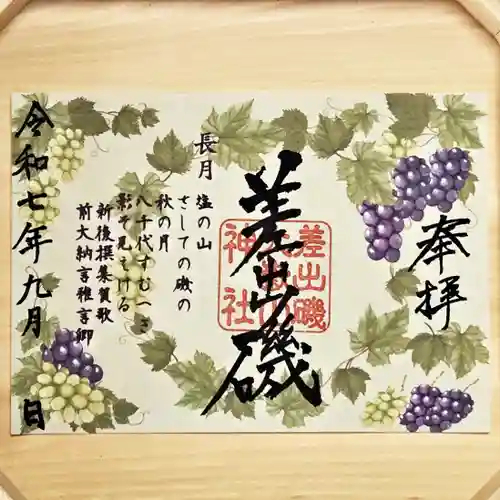 奉拝
差出磯
差出磯
大嶽山
神社
長月
塩の山
さしての磯の
秋の月
八千代すむべき
影ぞ見えける
新後撰集賀歌
前大納言雅言卿
令和七年九月 日